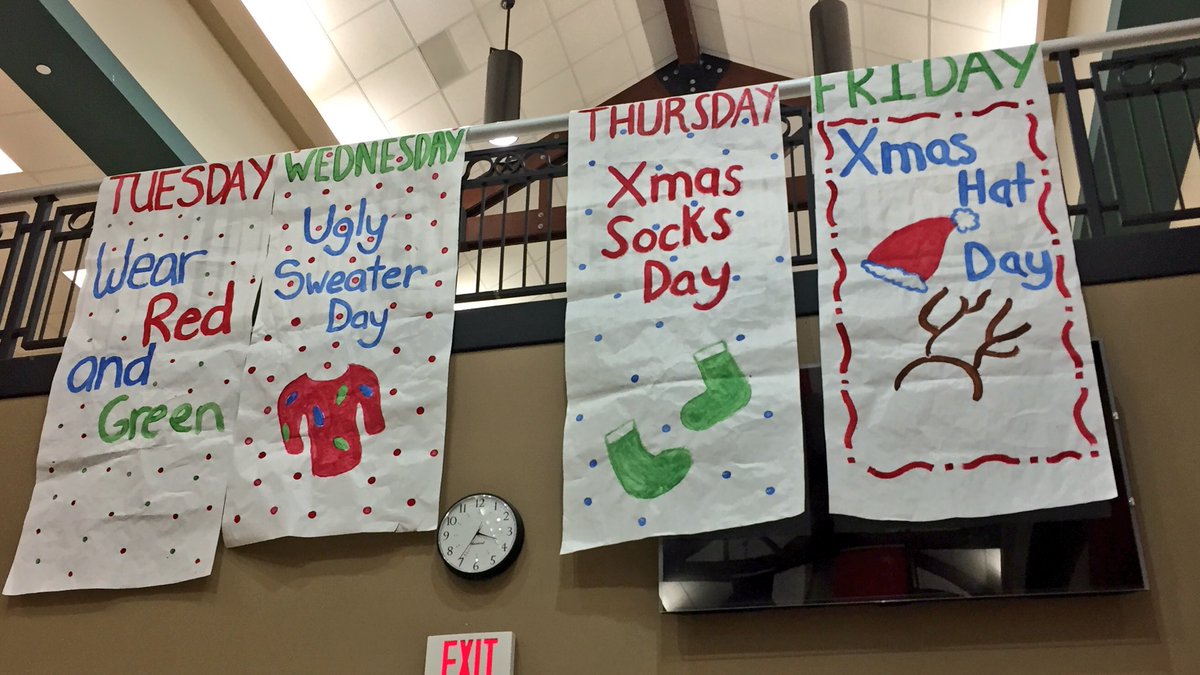 TUESDAY
Wear
Red
and
Green
WEDNESDAY
Ugly
Sweater
Day
THURSDAY
Xmas
Socks
Day
FRIDAY
Xmas
Hat
Day
12
1
2
3
4
5
6
7
8
9
10
11
EXIT